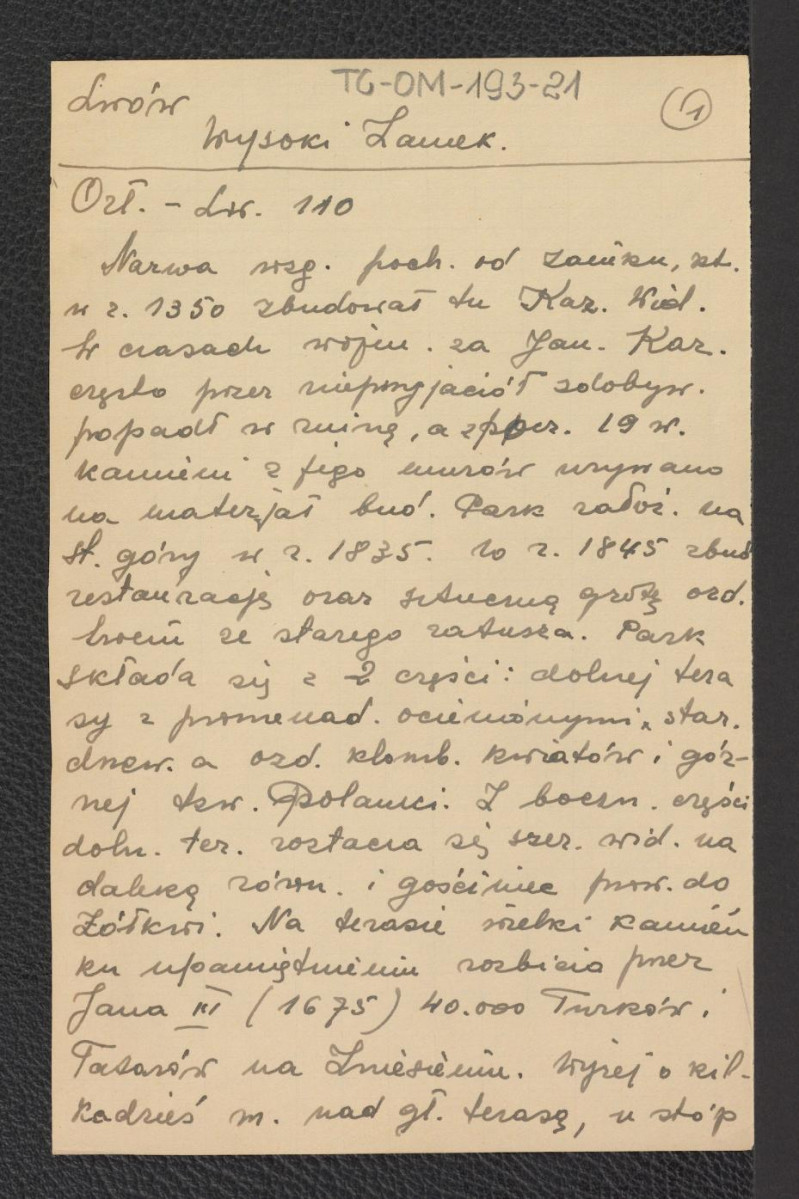 TG-OM-193-21
Lwów
1
Wysoki Zamek.
Orł. - Lw. 110
Nazwa wzg. poch. od zamku, kt.
w r. 1350 zbudował tu Kaz. Wiel.
W czasach wojen. za Jan. Kaz.
często przez nieprzyjaciół zdobyw.
popadł w ruinę, a z pocz. 19 w.
kamieni z jego murów używano
na materjał bud. Park założ. na
st. góry w r. 1835. W r. 1845 zbud
restaurację oraz sztuczną grotę ozd.
lwem ze starego ratusza. Park
składa się z 2 części: dolnej tera
sy z promenad. ocienionymi star.
drzew. a ozd. klomb. kwiatów i gór-
nej tzw. Polanki. Z boczn. części
doln. ter. roztacza się szer. wid. na
daleką równ. i gościniec prow. do
Żółkwi. Na terasie wielki kamień
ku upamiętnieniu rozbicia przez
Jana III (1675) 40.000 Turków i
Tatarów na Zniesieniu. Wyżej o kil-
kadzieś m. nad gł. terasą, u stóp